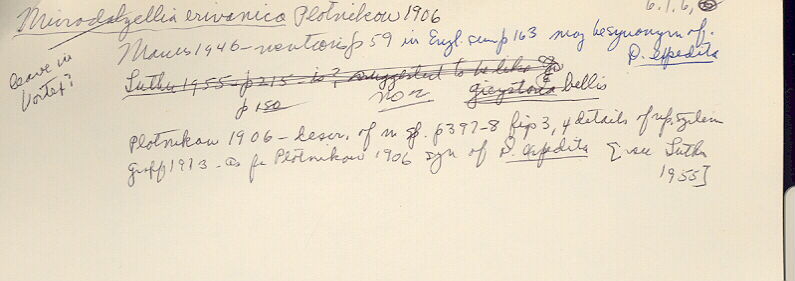 Microdalyellia erivanica Plotnikow 1906
6.1.6,
Marcus 1946 - mentions p 59 in Engl. sum p 163 may be synonym of
D. expedita
leave in
Vortex?
Luther 1955 - p 215 - is? suggested to be like
p 150
non
gieystona bellis
Plotnikow 1906 - descr. of n sp. p 397-8 figs 3, 4 details of rp. system
Graff 1913 - as fr Plotnikow 1906 syn of D. expedita [see Luther
1955]